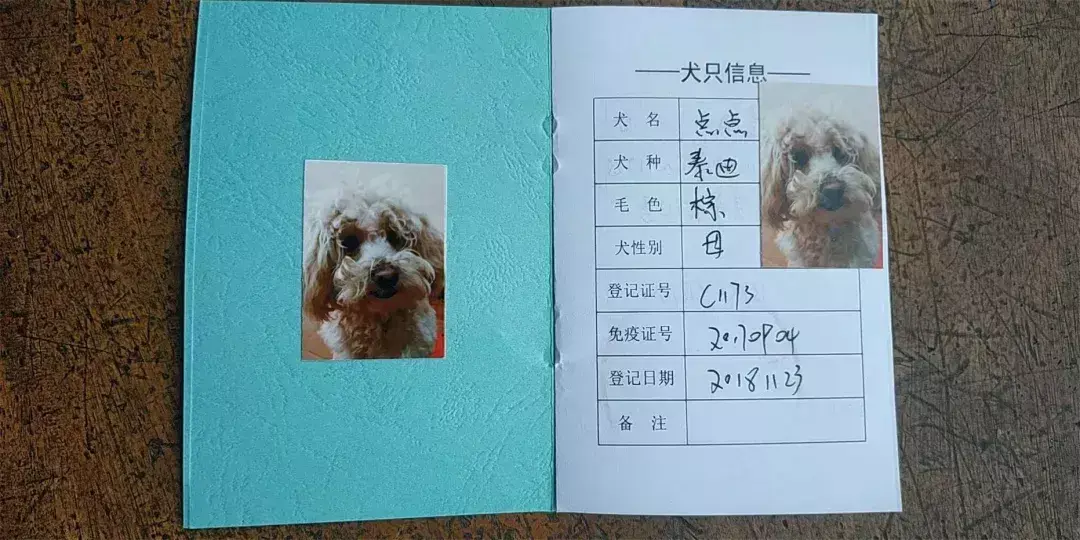 ——犬只信息——
犬 名 点点
犬 种 泰迪
毛 色 棕
犬性别 母
登记证号 C1173
免疫证号 20170904
登记日期 20181123
备 注